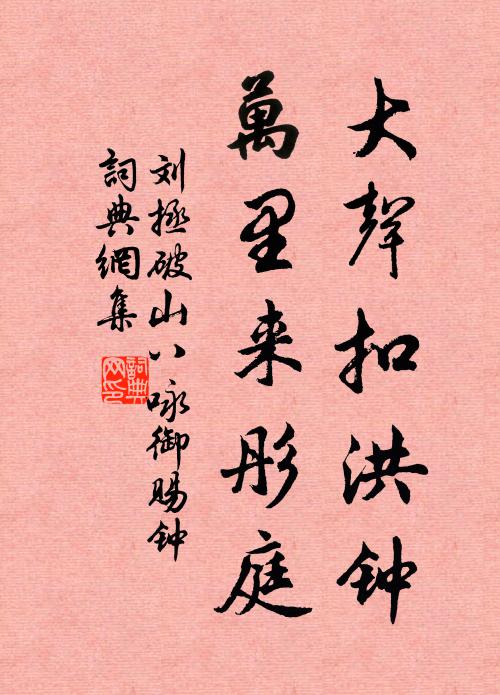 大聲扣洪钟
萬里来彤庭
刘拯破山八咏御赐钟
詞典網集
詞典网印